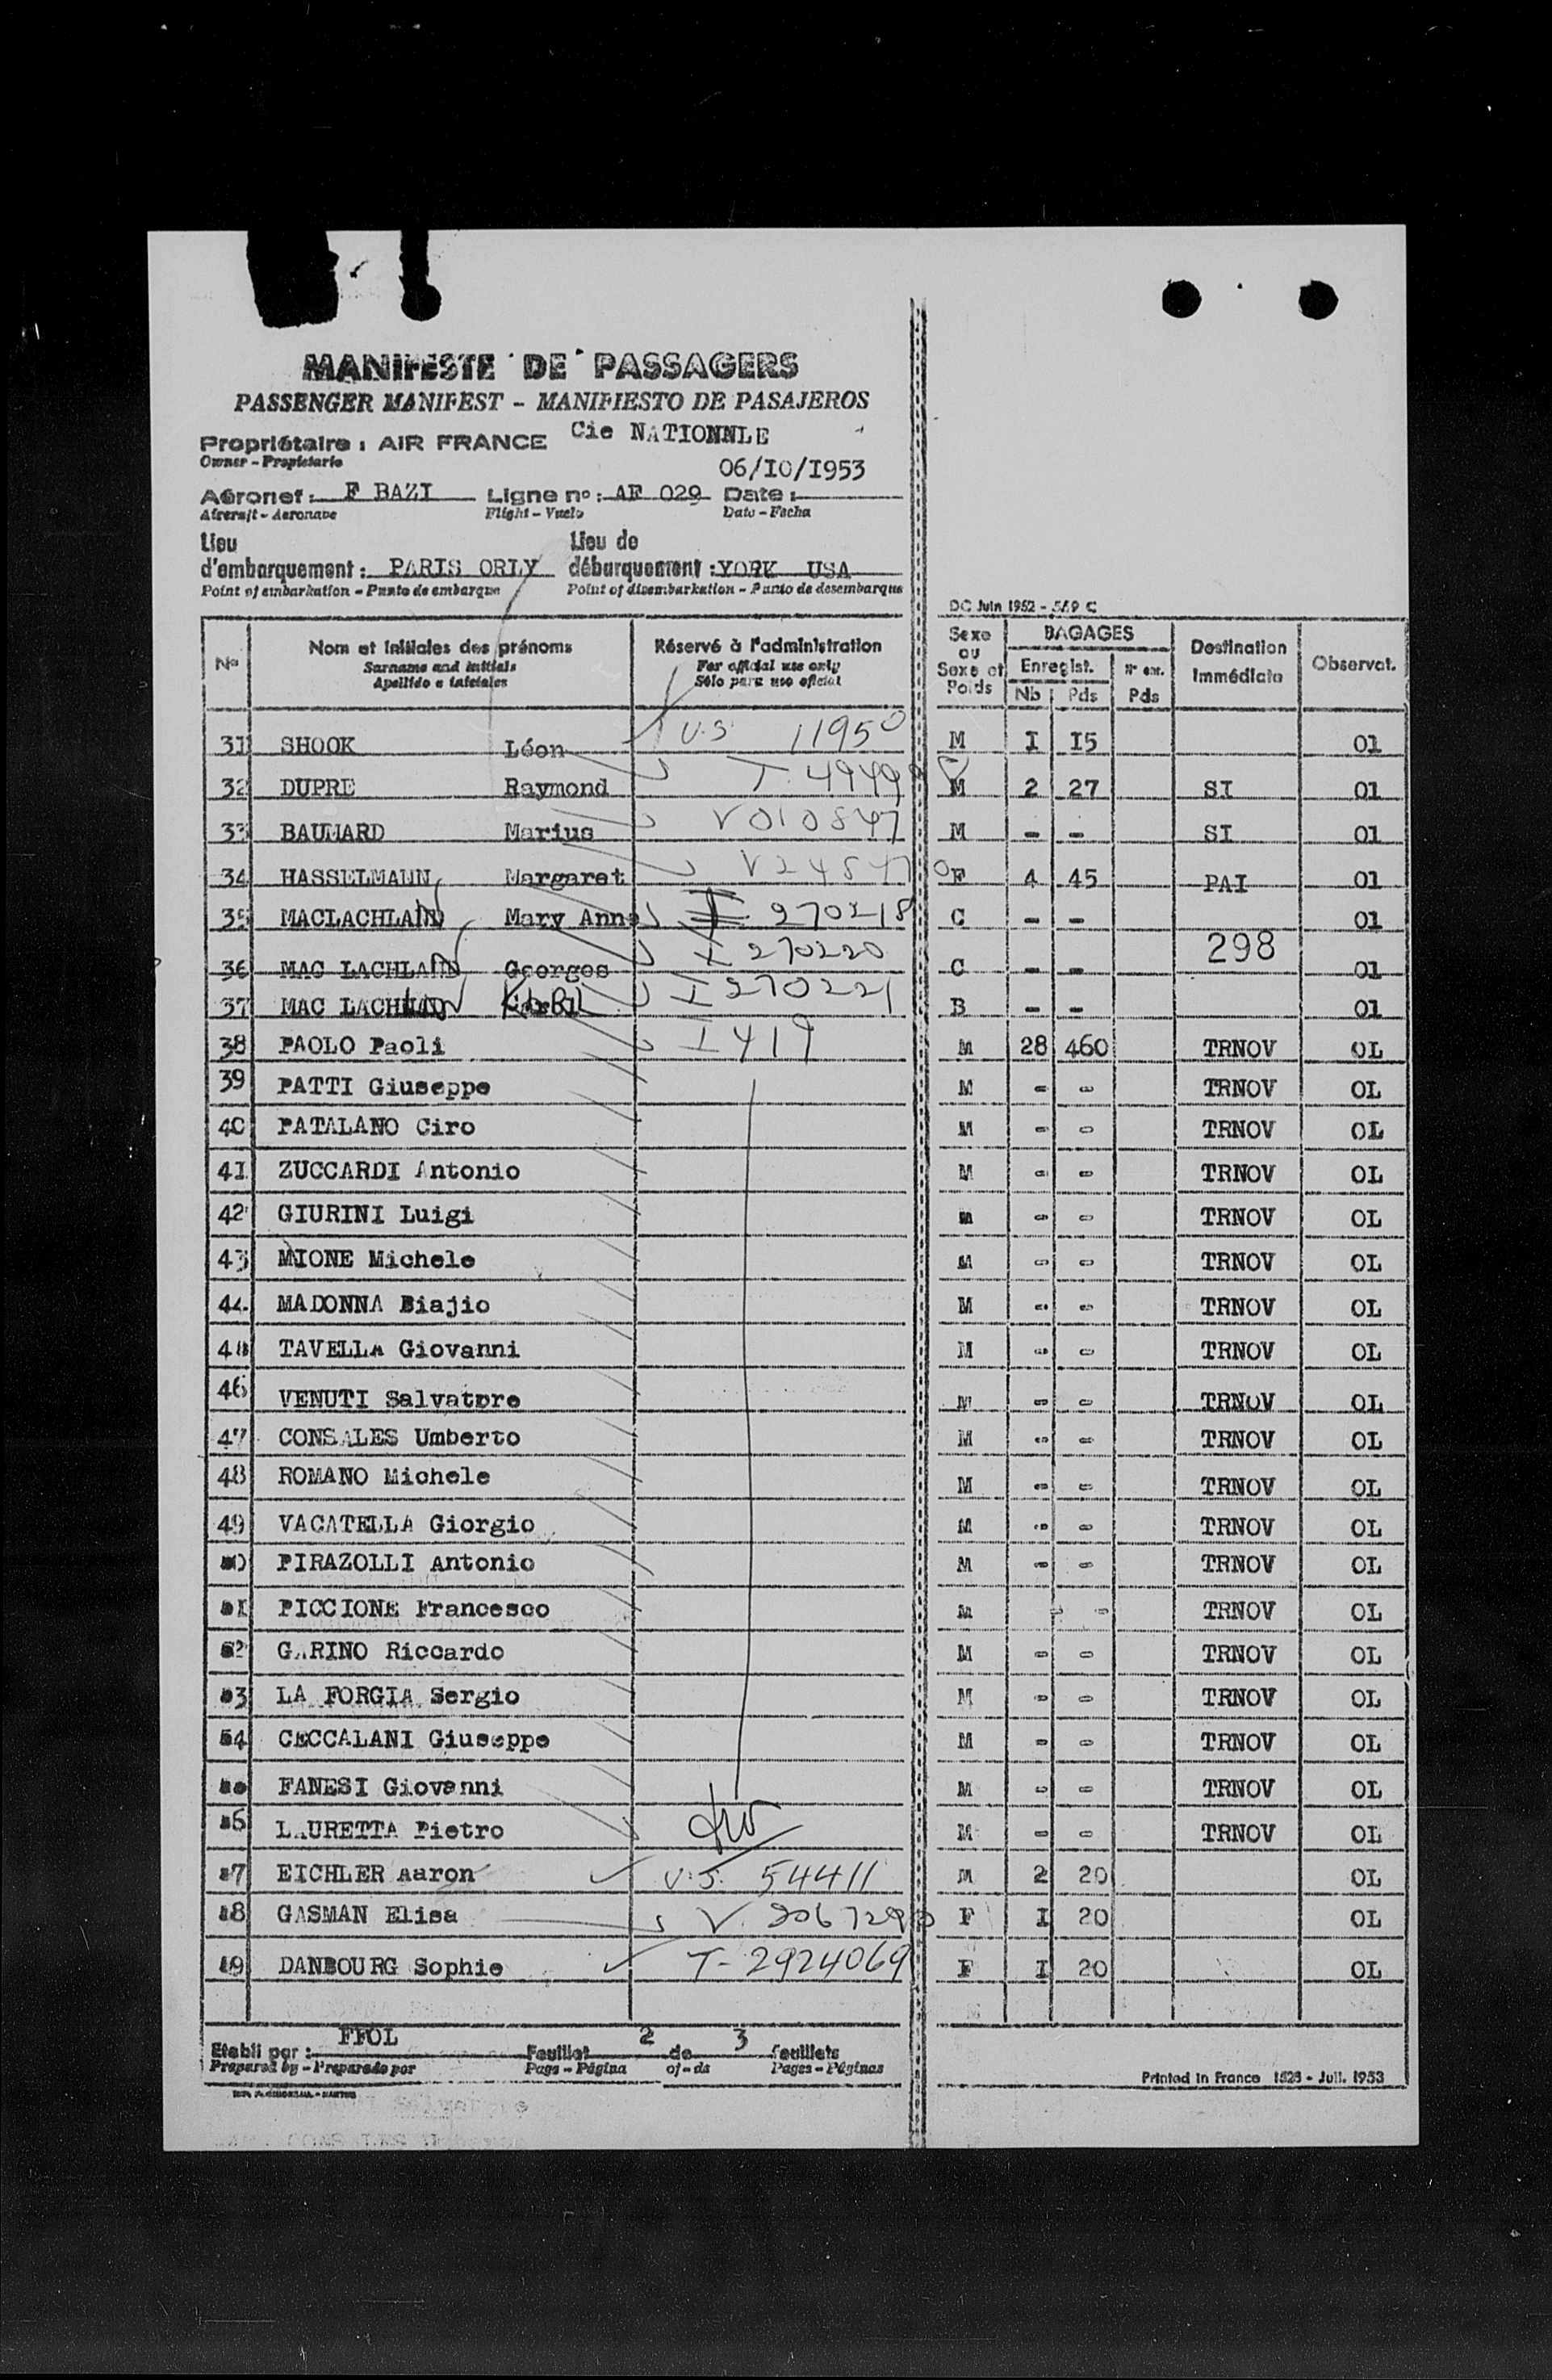 MANIFESTE DE PASSAGERS
PASSENGER MANIFEST - MANIFIESTO DE PASAJEROS
Propriétaire : AIR FRANCE Cie NATIONNLE
Owner - Propietario
06/IO/I953
Aéronef : F BAZI Ligne no : AF 029 Date :
Aircraft - Aeronave Flight - Vuelo Date - Fecha
Lieu d'embarquement : PARIS ORLY Lieu de débarquement : YORK USA
Point of embarkation - Punto de embarque Point of disembarkation - Punto de desembarque
DC Juin 1952 - 569 C
No Nom et initiales des prénoms Réservé à l'administration Sexe ou Sexe et Poids BAGAGES Destination Immédiate Observat.
Surname and initials For official use only Enregist.
Apellido e iniciales Sólo para uso oficial Nb Pds Pds
31 SHOOK Léon U.S. 11950 M I I5 01
32 DUPRE Raymond M 2 27 SI 01
33 BAUMARD Marius V010847 M - - SI 01
34 HASSELMANN Margaret F 4 45 PAI 01
35 MACLACHLAN Mary Anne I 270218 C - - 01
298
36 MAC LACHLAN Georges I 270220 C - - 01
37 MAC LACHLAN KARL I 270221 B - - 01
38 PAOLO Paoli I 419 M 28 460 TRNOV OL
39 PATTI Giuseppe M - - TRNOV OL
40 PATALANO Ciro M - - TRNOV OL
4I ZUCCARDI Antonio M - - TRNOV OL
42 GIURINI Luigi M - - TRNOV OL
43 MIONE Michele M - - TRNOV OL
44 MADONNA Biajio M - - TRNOV OL
TAVELLA Giovanni M - - TRNOV OL
46 VENUTI Salvatore M - - TRNOV OL
47 CONSALES Umberto M - - TRNOV OL
48 ROMANO Michele M - - TRNOV OL
49 VACATELLA Giorgio M - - TRNOV OL
PIRAZOLLI Antonio M - - TRNOV OL
PICCIONE Francesco M - - TRNOV OL
52 GARINO Riccardo M - - TRNOV OL
LA FORGIA Sergio M - - TRNOV OL
54 CECCALANI Giuseppe M - - TRNOV OL
FANESI Giovanni M - - TRNOV OL
LAURETTA Pietro M - - TRNOV OL
EICHLER Aaron U.S. 54411 M 2 20 OL
GASMAN Elisa F I 20 OL
DANBOURG Sophie T-2924069 F I 20 OL
Etabli par : FFOL Feuillet 2 de 3 feuillets
Prepared by - Preparado por Page - Página of - de Pages - Páginas
Printed in France 1523 - Juil. 1953